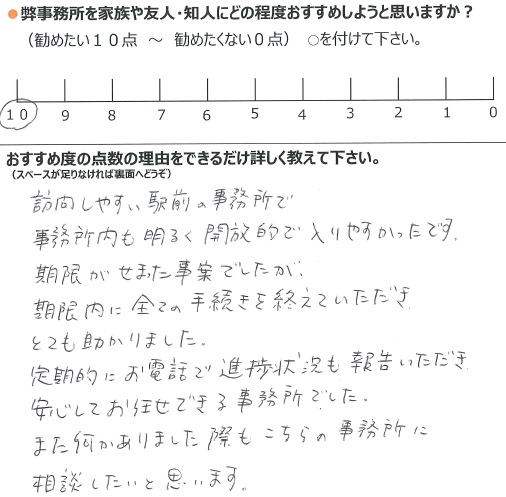 ●弊事務所を家族や友人・知人にどの程度おすすめしようと思いますか？
（勧めたい１０点　～　勧めたくない０点）　○を付けて下さい。
10 9 8 7 6 5 4 3 2 1 0
おすすめ度の点数の理由をできるだけ詳しく教えて下さい。
（スペースが足りなければ裏面へどうぞ）
訪問しやすい駅前の事務所で
事務所内も明るく開放的で入りやすかったです。
期限がせまった事案でしたが、
期限内に全ての手続きを終えていただき
とても助かりました。
定期的にお電話で進捗状況も報告いただき
安心してお任せできる事務所でした。
また何かありました際もこちらの事務所に
相談したいと思います。